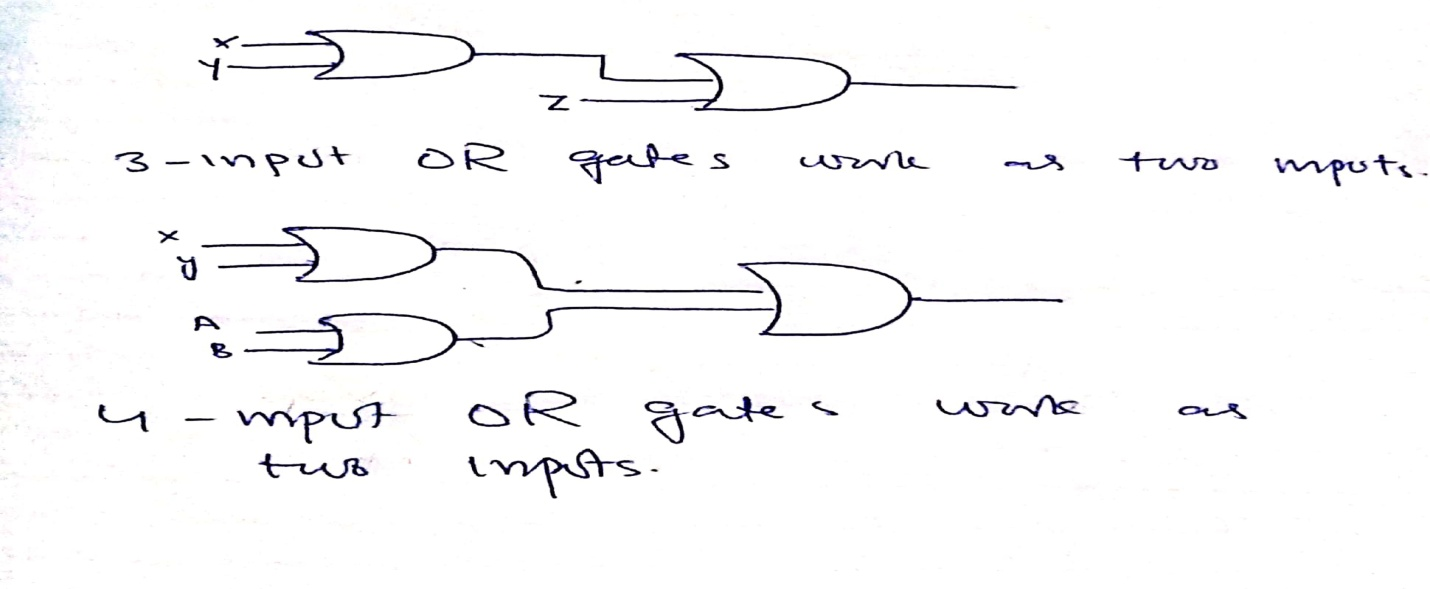 x
y
z
3-input OR gates work as two inputs.
x
y
A
B
4-input OR gates work as
two inputs.